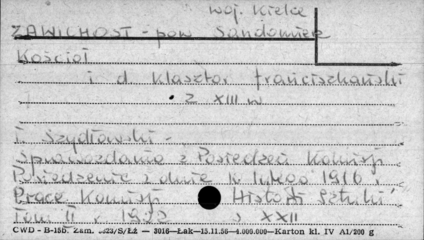 woj. Kielce
ZAWICHOST - pow Sandomierz
Kościół
i d. klasztor franciszkański
z XIII w
T. Szydłowski -
Sprawozdania z Posiedzeń Komisji
Posiedzenie z dnia 1910
Prace Komisji Historii Sztuki
Tom II z 1922 s XXII
CWD - B-15b. Zam. 23/S/Łź — 3016—Łak—15.11.56—4.000.000—Karton kl. IV A1/200 g